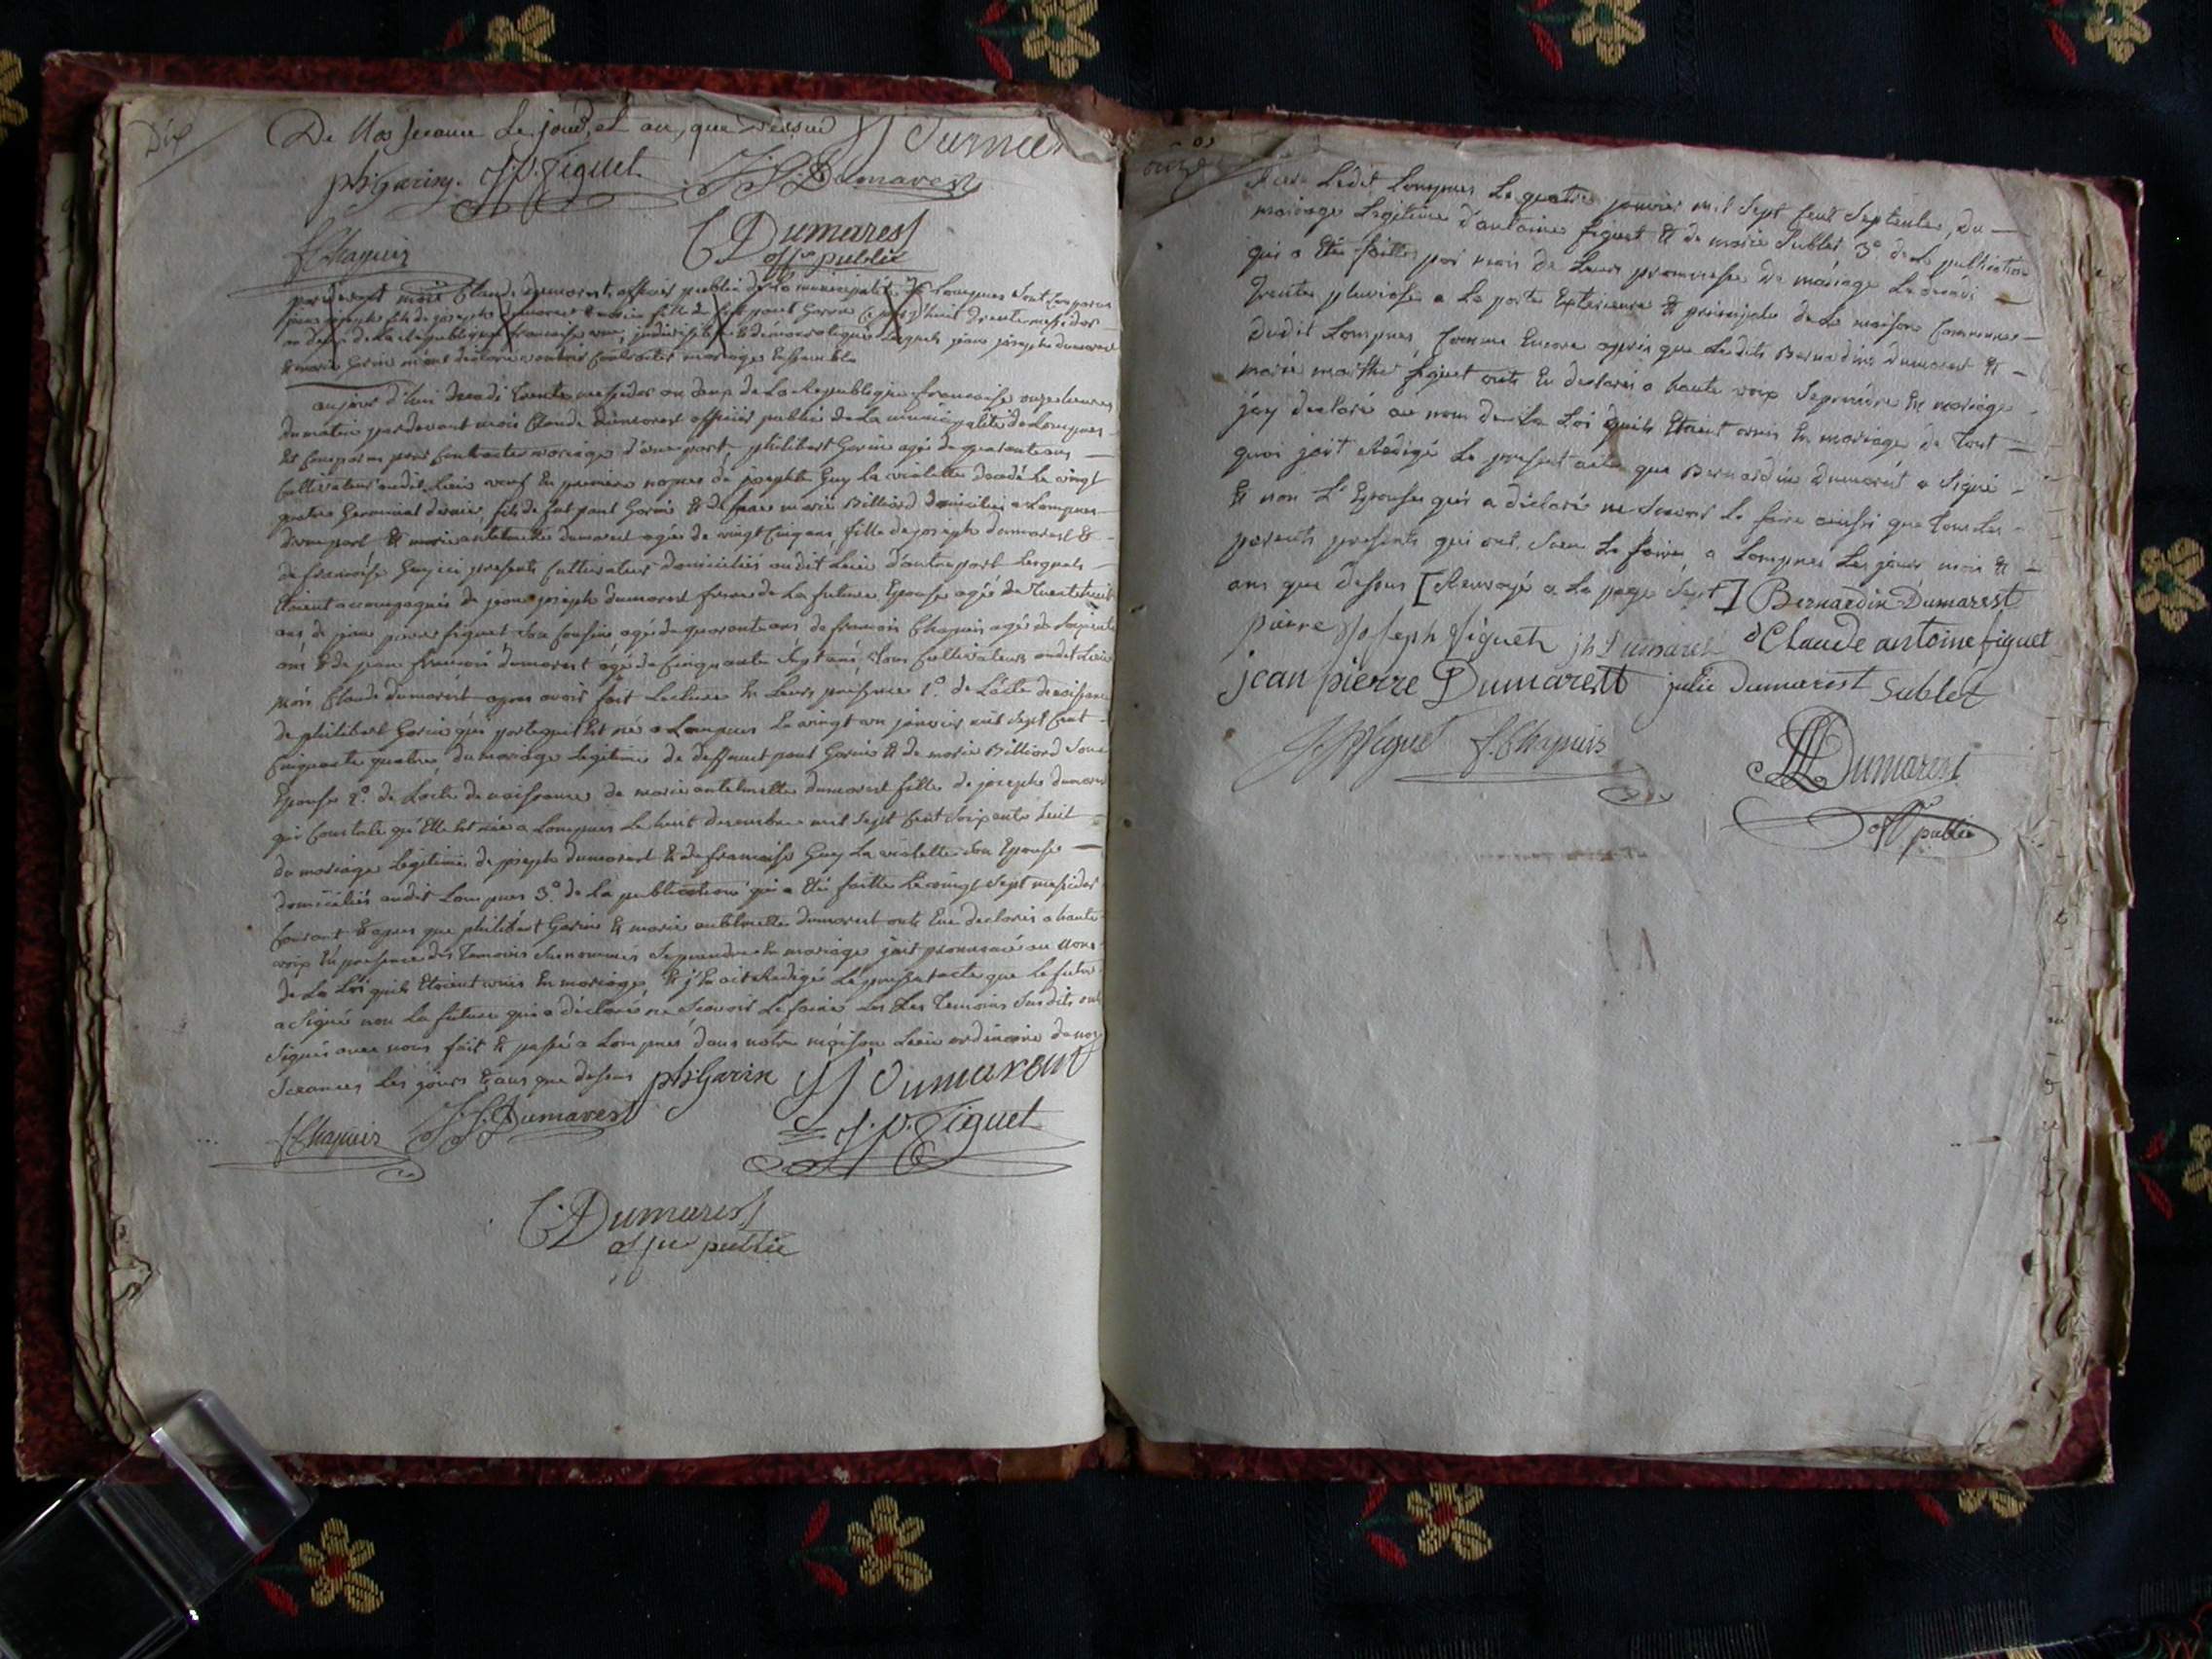 Dix
De Nos seances Les jour, et an, que dessus JJ Dumarest
ph. Garin. J. P. Figuet J. F. Dumarest
f. Chapuis C Dumarest
offer public
pardevant moi Claude dumarest officier public de la municipalité de Lompnes sont comparus
jean joseph fils de joseph dumarest & marie fille de feu paul Garin
an deux de la republique francaise une, indivisible & democratique Lesquels jean joseph dumarest
& marie Garin m'ont declaré vouloir contracter mariage Ensemble
aujourd'hui decadi trente messidor an deux de La Republique francaise onze heures
du matin pardevant moi Claude dumarest officier public de La municipalité de Lompnes
Est comparu pour contracter mariage d'une part, philibert Garin agé de quarante ans
Cultivateur audit Lieu veuf En premiere nopces de josephte Guy La violette decedé Le vingt
quatre Germinal dernier, fils de feu paul Garin & de marie Billiard domiciliés a Lompnes
d'une part & marie anthelmette dumarest agée de vingt cinq ans, fille de joseph dumarest &
de francoise Guy ici presents cultivateurs domiciliés audit Lieu d'autre part Lesquels
Etaient accompagnés de jean joseph dumarest frere de La future Epouse agé de Trente huit
ans de jean pierre figuet son cousin agé de quarante ans de francois Chapuis agé de soixante
ans & de jean francois dumarest agé de cinquante sept ans, tous cultivateurs audit Lieu
moi Claude dumarest apres avoir fait Lecture En Leurs presence 1.° de L'acte de naissance
de philibert Garin qui porte quil Est né a Lompnes Le vingt un janvier mil sept cent
cinquante quatre, du mariage Legitime de deffunt paul Garin & de marie Billiard son
Epouse 2.° de L'acte de naissance de marie anthelmette dumarest fille de joseph dumarest
qui constate qu'Elle Est née a Lompnes Le huit decembre mil sept cent soixante huit
du mariage Legitime de joseph dumarest & de francoise Guy La violette son Epouse
domiciliés audit Lompnes 3.° de La publication qui a Eté faitte Le vingt sept messidor
courant & apres que philibert Garin & marie anthelmette dumarest ont Eu declarés a haute
voix En presence des temoins susnommés se prendre En mariage jait prononcé au nom
de La Loi quils Etoient unis En mariage, & j'En ait Redigé Le present acte que Le futur
a signé non La future qui a déclaré ne scavoir Le faire Les Temoins susdits ont
signés avec nous fait & passé a Lompnes dans notre maison Lieu ordinaire de nos
sceances Les jours & ans que dessus ph. Garin JJ Dumarest
f Chapuis J. F. Dumarest J. P. Figuet
C. Dumarest
offier public
onze
Ledit Lompnes Le quatre janvier mil sept cent septente, du
mariage Legitime d'antoine figuet & de marie Sublet, 3.° de La publication
qui a Eté faitte par moi de Leurs promesse de mariage Le decadi
Trente pluviose a La porte Exterieure & principale de La maison commune
dudit Lompnes, comme Encore apres que Lesdits Bernardin dumarest &
marie marthe figuet onts Eu declarés a haute voix se prendre En mariage
jay declaré au nom de La Loi quils Etaient unis En mariage de tout
quoi jait Redigé Le present acte que Bernardin dumarest a signé
& non L'Epouse qui a déclaré ne scavoir Le faire ainsi que tous Les
parents presents qui ont sceu Le faire, a Lompnes Les jour mois &
ans que dessus [Renvoyé a La page sept] Bernardin Dumarest
pierre joseph figuet jh Dumarest Claude antoine figuet
jean pierre Dumarest julie dumarest Sublet
J. P. figuet f. Chapuis Dumarest
off public